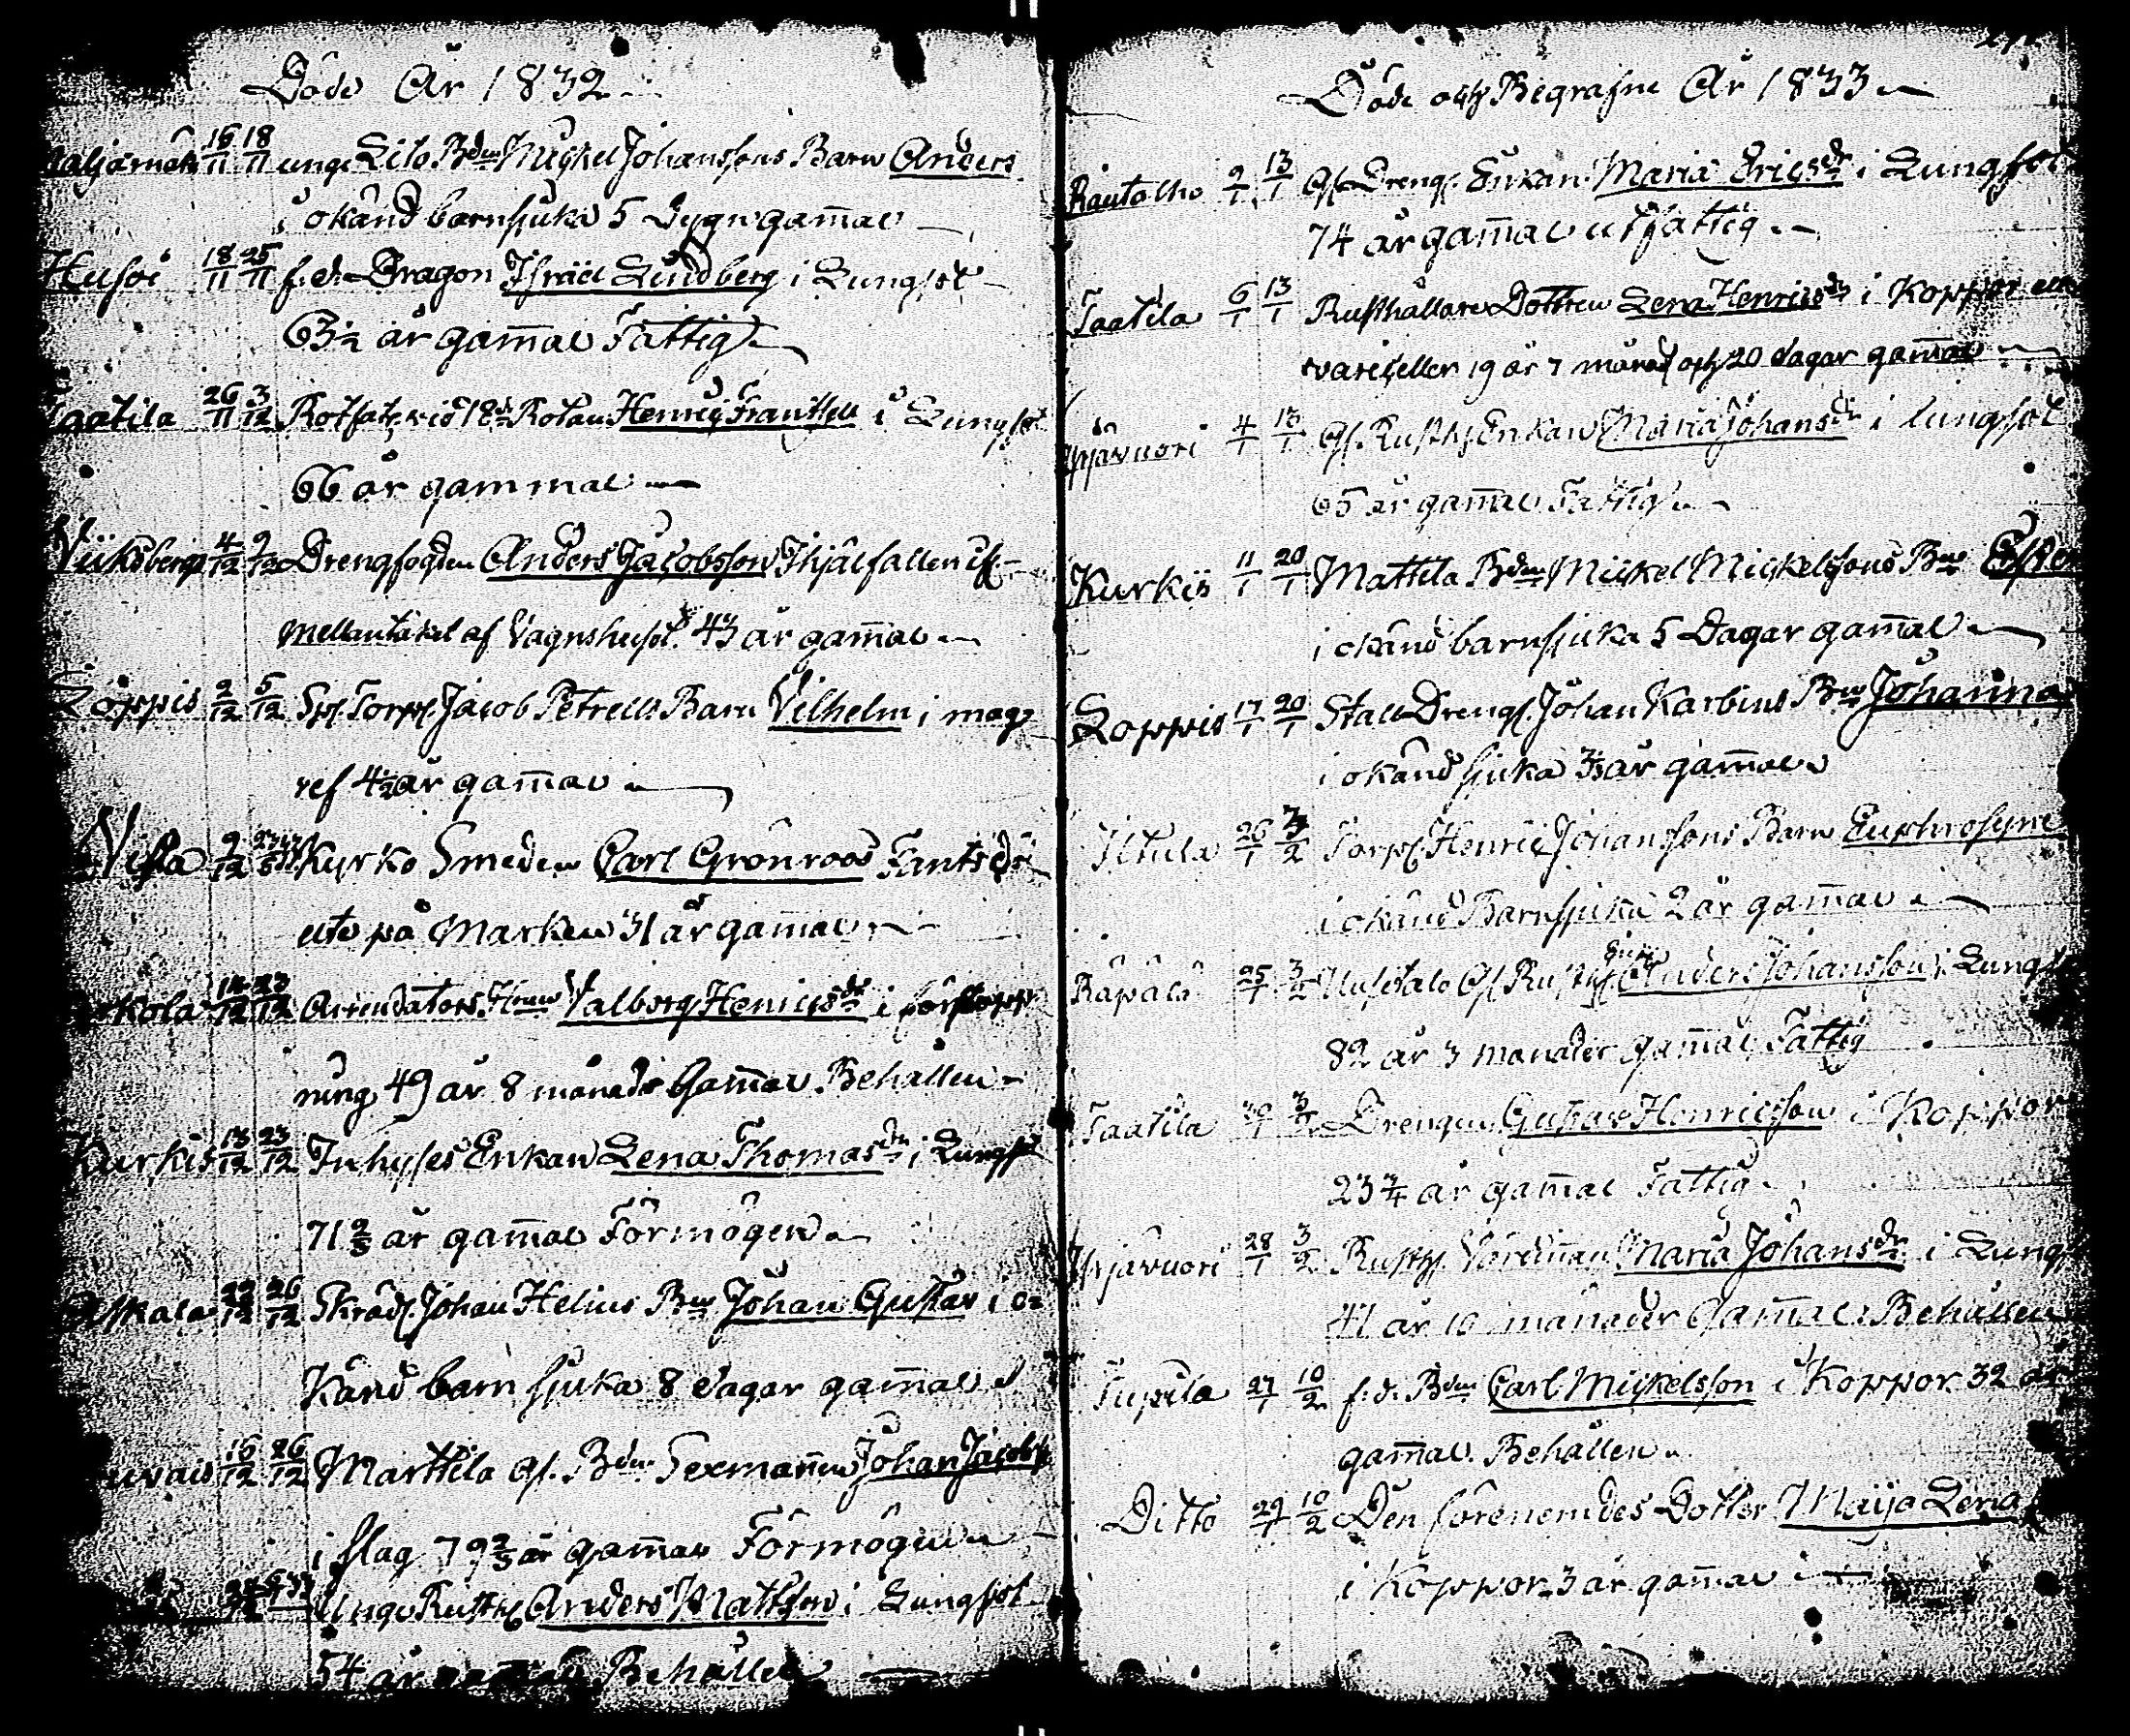 Döde År 1832
16/11 18/11 unge Lilo Bdn Mickel Johanssons Barn Anders
i okänd barnsjuka 5 Dygn gam̄al
Husoi 18/11 25/11 f.d. Dragon Israël Lindberg i Lungsot
63½ år gam̄al Fattig
Taatila 26/11 3/12 Rotfat. vid 18de Rotan Henric Frantsell i Lungsot
66 år gammal
Viiksberg 4/12 9/12 Drengfogden Anders Jacobsson Ihjälfallen
Mellantaket af Vagnshuset 43 år gam̄al
Loppis 2/12 5/12 Torp. Jacob Petrells Barn Vilhelm i mag
ref 4½ år gam̄al
9/12 Kyrko Smeden Carl Grönroos Fants död
ute på Marken 31 år gam̄al
Arrendators Hrun Valborg Henricsdr i förstopp
ning 49 år 8 månader Gam̄al. Behållen
Kurkis 13/12 23/12 Inhyses Enkan Lena Thomasdr i Lungsot
71⅔ år gam̄al Förmögen
22/12 26/12 Skräd. Johan Helius Bn Johan Gustav i o=
känd barn sjuka 8 dagar gam̄al
16/12 26/12 Marttila Gl. Bdn Sexman̄en Johan Jacobs
i slag 79⅔ år gam̄al Förmögen
Unge Rusth Anders Mattsson i Lungsot
54 år gam̄al Behållen
Döde och Begrafne År 1833
Rautalho 9/1 13/1 Gl Dreng. Enkan Maria Ericsdr i Lungsot
74 år gam̄al utfattig
Taatila 6/1 13/1 Rusthållare Dottren Lena Henricsdr i Koppor ell
variceller 19 år 7 månad och 20 dagar gam̄al
4/1 13/1 Gl. Rusth Enkan Maria Johansdr i lungsot
65 år gam̄al Fattig
Kurkis 11/1 20/1 Mattila Bdn Mickel Mickelssons Bn Ester
i okänd barnsjuka 5 Dagar gam̄al
Loppis 17/1 20/1 Stall Dreng. Johan Karbins Bn Johanna
i okänd sjuka år gam̄al
Iltula 26/1 3/2 Torp Henric Johanssons Barn Euphrosyne
i okänd Barnsjuka 2 år gam̄al
Räpälä 25/1 3/2 Ulustalo Gl Rusth Anders Johansson i Lungsot
82 år 3 månader gam̄al Fattig
Taatila 30/1 3/2 Drengen Gustav Henricsson i Koppor
23¾ år gam̄al Fattig
28/1 3/2 Rusth. Värdin̄an Maria Johansdr i Lungs
41 år 10 månader Gam̄al. Behållen
Tupila 27/1 10/2 f.d. Bdn Carl Mickelsson i Koppor 32 år
gam̄al. Behållen
Ditto 29/1 10/2 Den förenemdes Dotter Maija Lena
i Koppor 3 år gam̄al